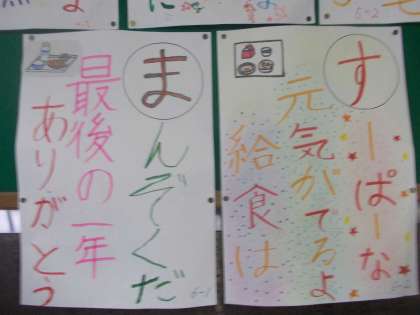 す
ーぱーな
元気がでるよ
給食は
6-2
ま
んぞくだ
最後の一年
ありがとう
6-1
6-2